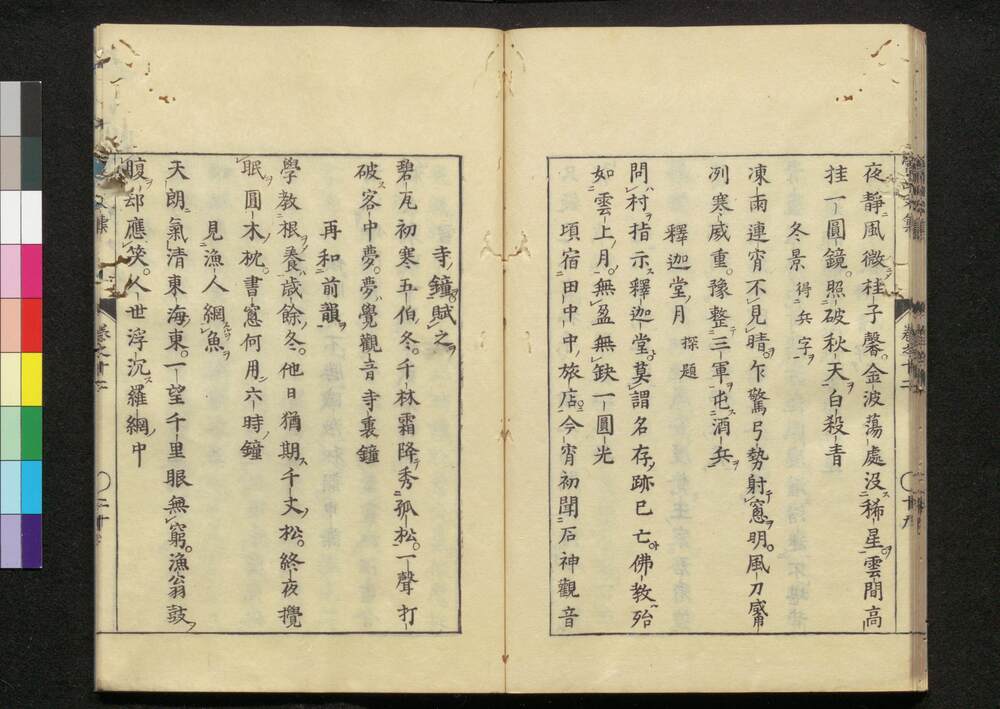 夜靜風微桂子馨金波蕩處沒稀星雲間高
挂一圓鏡照破秋天白殺青
冬景 得兵字
凍雨連宵不見晴乍驚弓勢射窻明風刀
冽寒威重豫整三軍屯酒兵
釋迦堂月 探題
問村指示釋迦堂莫謂名存跡已亡佛教殆
如雲上月無盈無缺一圓光
頃宿田中中旅店今宵初聞石神觀音
寺鐘賦之
碧瓦初寒五伯冬千林霜降秀孤松一聲打
破客中夢夢覺觀音寺裏鐘
再和前韻
學教根養歲餘冬他日猶期千丈松終夜攪
眠圓木枕書窻何用六時鐘
見漁人網魚
天朗氣清東海東一望千里眼無窮漁翁鼓
腹却應笑人世浮沉羅網中
卷之十二
十九
二十